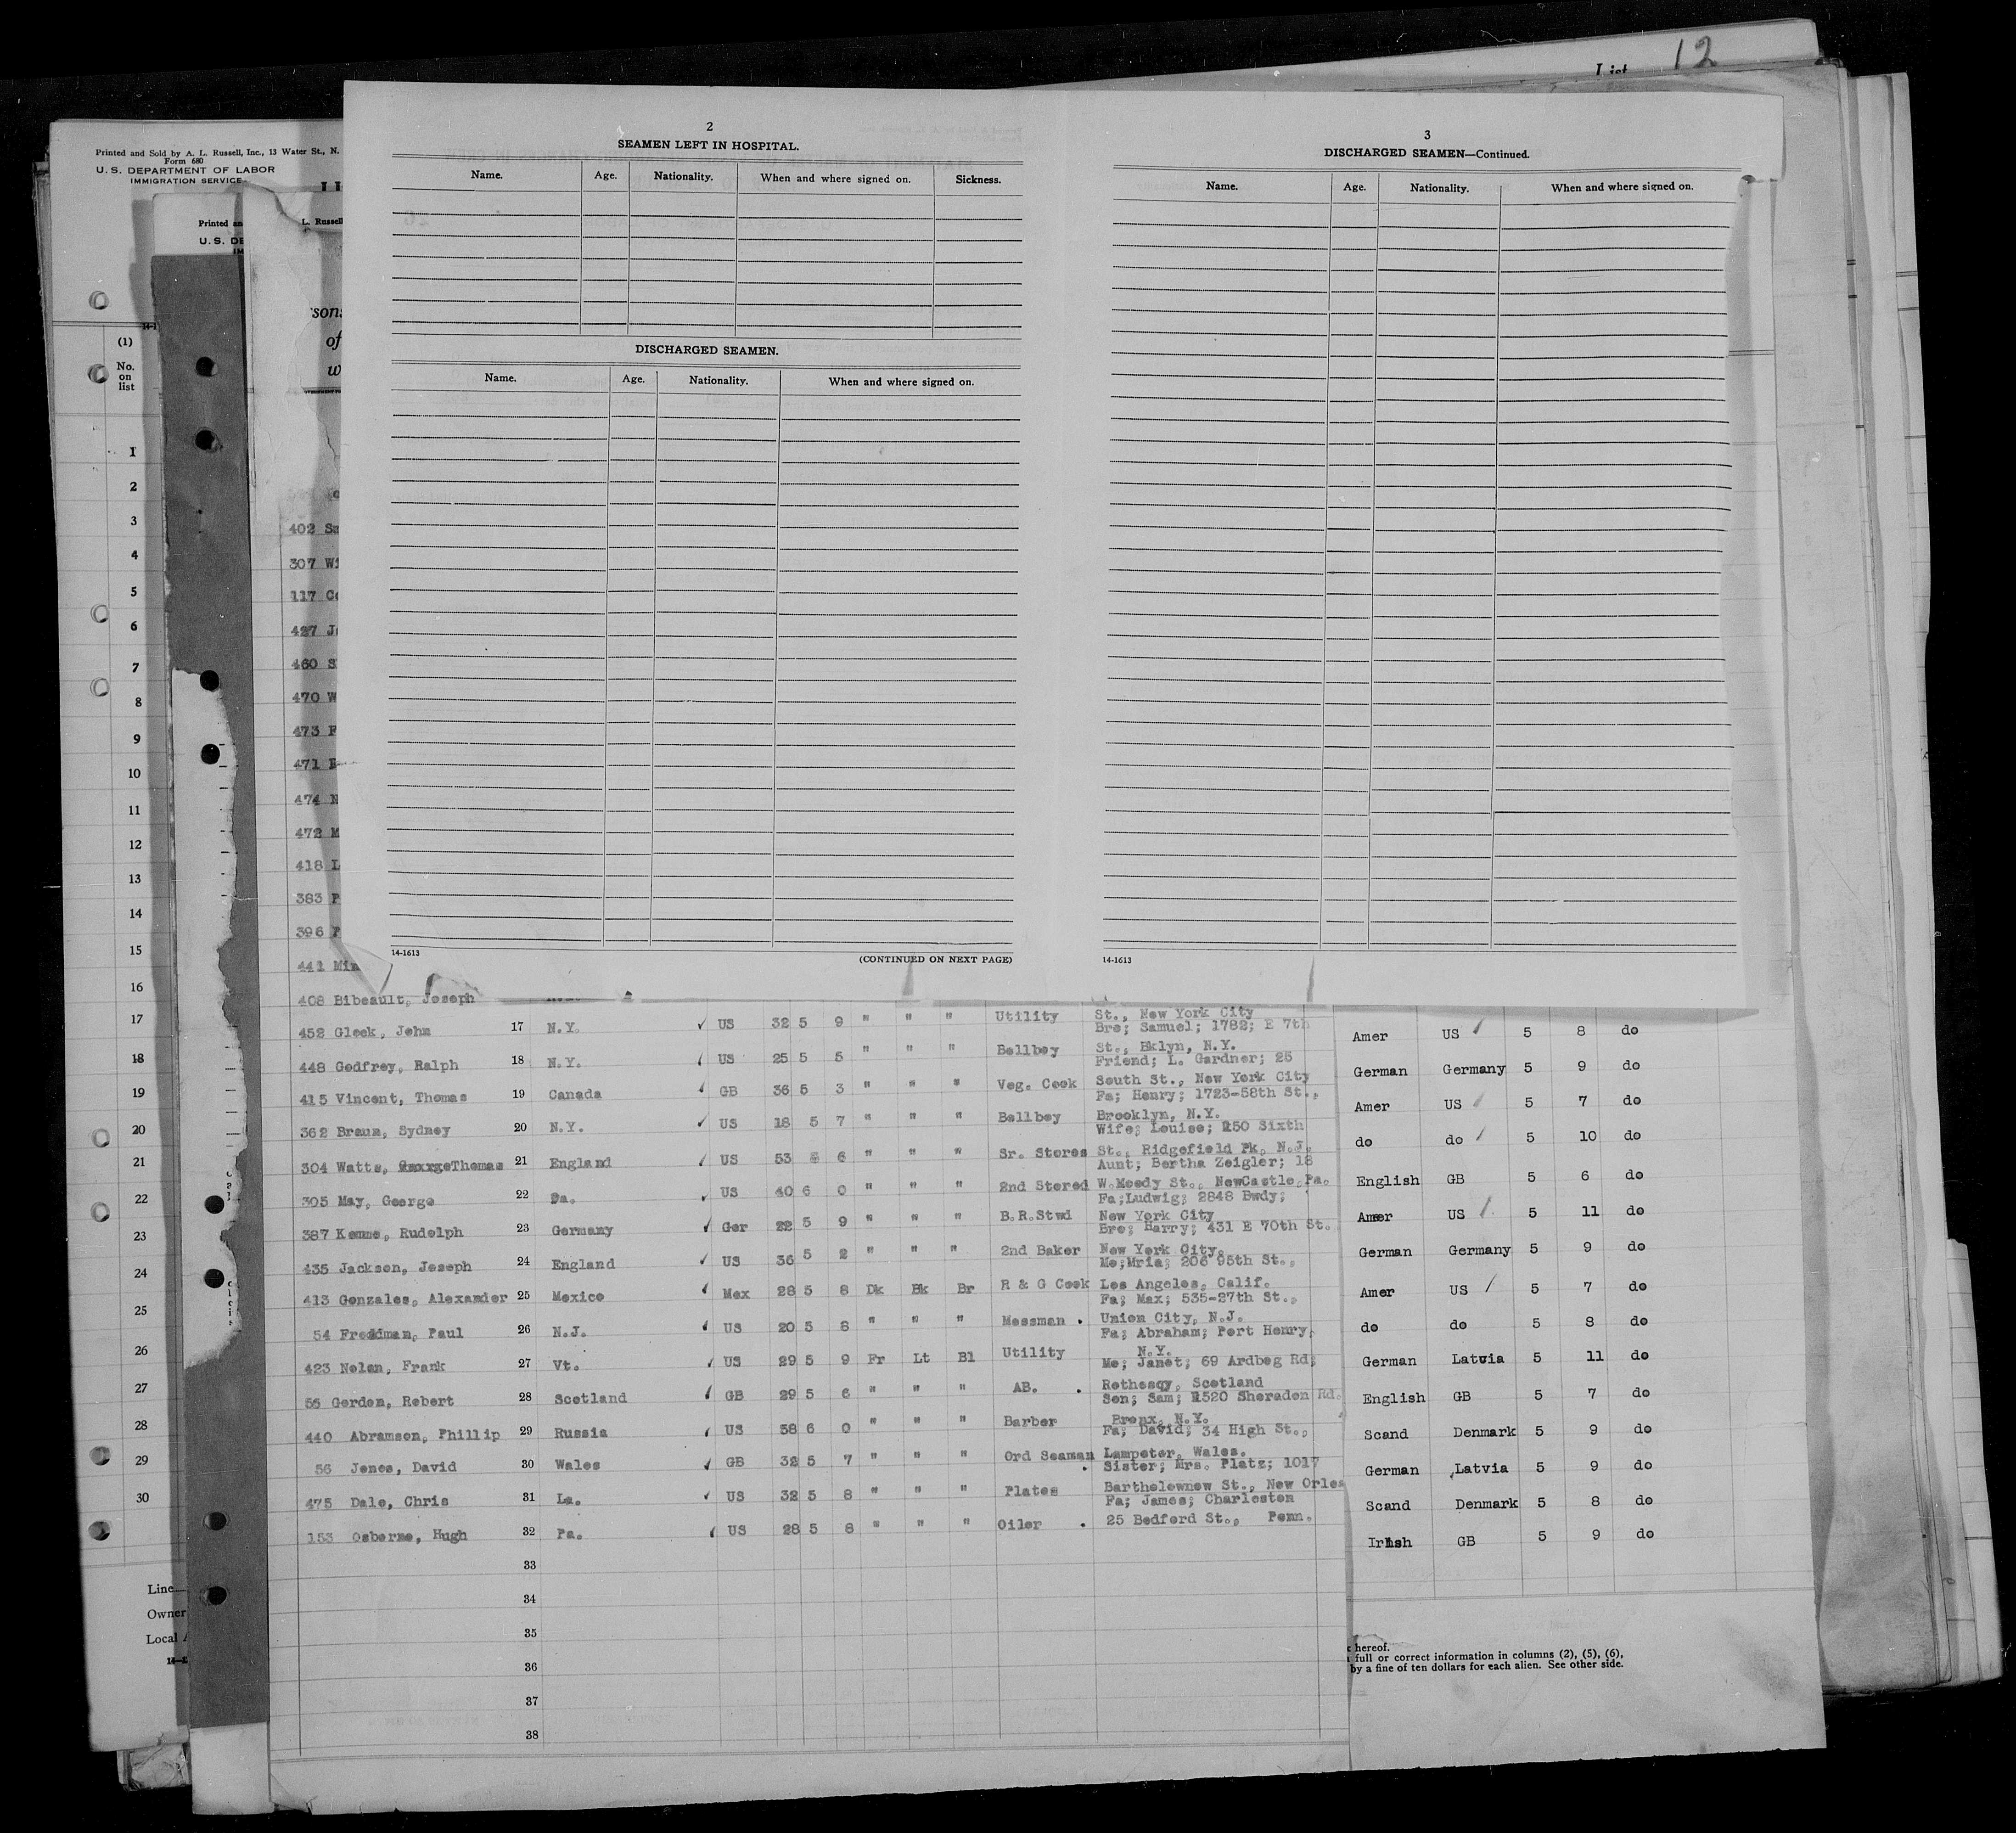 12
List
Printed and Sold by A. L. Russell, Inc., 13 Water St., N.
Form 680
U. S. DEPARTMENT OF LABOR
IMMIGRATION SERVICE
Printed an
L. Russell
U. S. DE
IM
sons
of
w
14-1
(1)
No.
on
list
1
2
3
4
5
6
7
8
9
10
11
12
13
14
15
16
17
18
19
20
21
22
23
24
25
26
27
28
29
30
Line
Owner
Local A
2
SEAMEN LEFT IN HOSPITAL.
Name. Age. Nationality. When and where signed on. Sickness.
DISCHARGED SEAMEN.
Name. Age. Nationality. When and where signed on.
14-1613
(CONTINUED ON NEXT PAGE)
3
DISCHARGED SEAMEN—Continued.
Name. Age. Nationality. When and where signed on.
14-1613
402 Sm
307 Wi
117 Co
427 Ja
460 S
470 W
473 F
471
474 N
472 M
418 L
383 P
396
441 Min
408 Bibeault, Joseph
452 Gleek, John 17 N.Y. US 32 5 9 " " " Utility St., New York City
Bro; Samuel; 1782; E 7th
448 Godfrey, Ralph 18 N.Y. US 25 5 5 " " " Bellboy St., Bklyn, N.Y.
Friend; L. Gardner; 25
415 Vincent, Thomas 19 Canada GB 36 5 3 " " " Veg. Cook South St., New York City
Fa; Henry; 1723-58th St.,
362 Braun, Sydney 20 N.Y. US 18 5 7 " " " Bellboy Brooklyn, N.Y.
Wife; Louise; 150 Sixth
304 Watts, Thomas 21 England US 53 6 " " " Sr. Stores St., Ridgefield Pk, N.J.
Aunt; Bertha Zeigler; 18
305 May, George 22 Pa. US 40 6 0 " " " 2nd Stored W.Moody St., NewCastle,Pa.
Fa;Ludwig; 2848 Bwdy;
387 Kemme, Rudolph 23 Germany Ger 22 5 9 " " " B.R.Stwd New York City
Bro; Harry; 431 E 70th St.
435 Jackson, Joseph 24 England US 36 5 2 " " " 2nd Baker New York City,
Mo;Mria; 206 95th St.,
413 Gonzales, Alexander 25 Mexico Mex 28 5 8 Dk Bk Br R & G Cook Los Angeles, Calif.
Fa; Max; 535-27th St.,
54 Freedman, Paul 26 N.J. US 20 5 8 " " " Messman . Union City, N.J.
Fa; Abraham; Port Henry,
423 Nolan, Frank 27 Vt. US 29 5 9 Fr Lt Bl Utility N.Y.
Mo; Janet; 69 Ardbeg Rd;
55 Gordon, Robert 28 Scotland GB 29 5 6 " " " AB. . Rothesqy, Scotland
Son; Sam; 1520 Sheradon Rd.
440 Abramson, Phillip 29 Russia US 58 6 0 " " " Barber Bronx, N.Y.
Fa; David; 34 High St.,
56 Jones, David 30 Wales GB 32 5 7 " " " Ord Seaman . Lampeter, Wales.
Sister; Mrs. Platz; 1017
475 Dale, Chris 31 La. US 32 5 8 " " " Plates Bartholewnew St., New Orlea
Fa; James; Charleston
153 Osborne, Hugh 32 Pa. US 28 5 8 " " " Oiler . 25 Bedford St., Penn.
33
34
35
36
37
38
Amer US 5 8 do
German Germany 5 9 do
Amer US 5 7 do
do do 5 10 do
English GB 5 6 do
Amer US 5 11 do
German Germany 5 9 do
Amer US 5 7 do
do do 5 8 do
German Latvia 5 11 do
English GB 5 7 do
Scand Denmark 5 9 do
German Latvia 5 9 do
Scand Denmark 5 8 do
Irish GB 5 9 do
hereof.
full or correct information in columns (2), (5), (6),
by a fine of ten dollars for each alien. See other side.